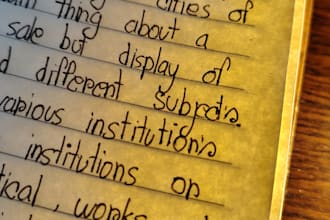 thing about a
sale but display of
different subjects.
various institutions
institutions or
tical, works